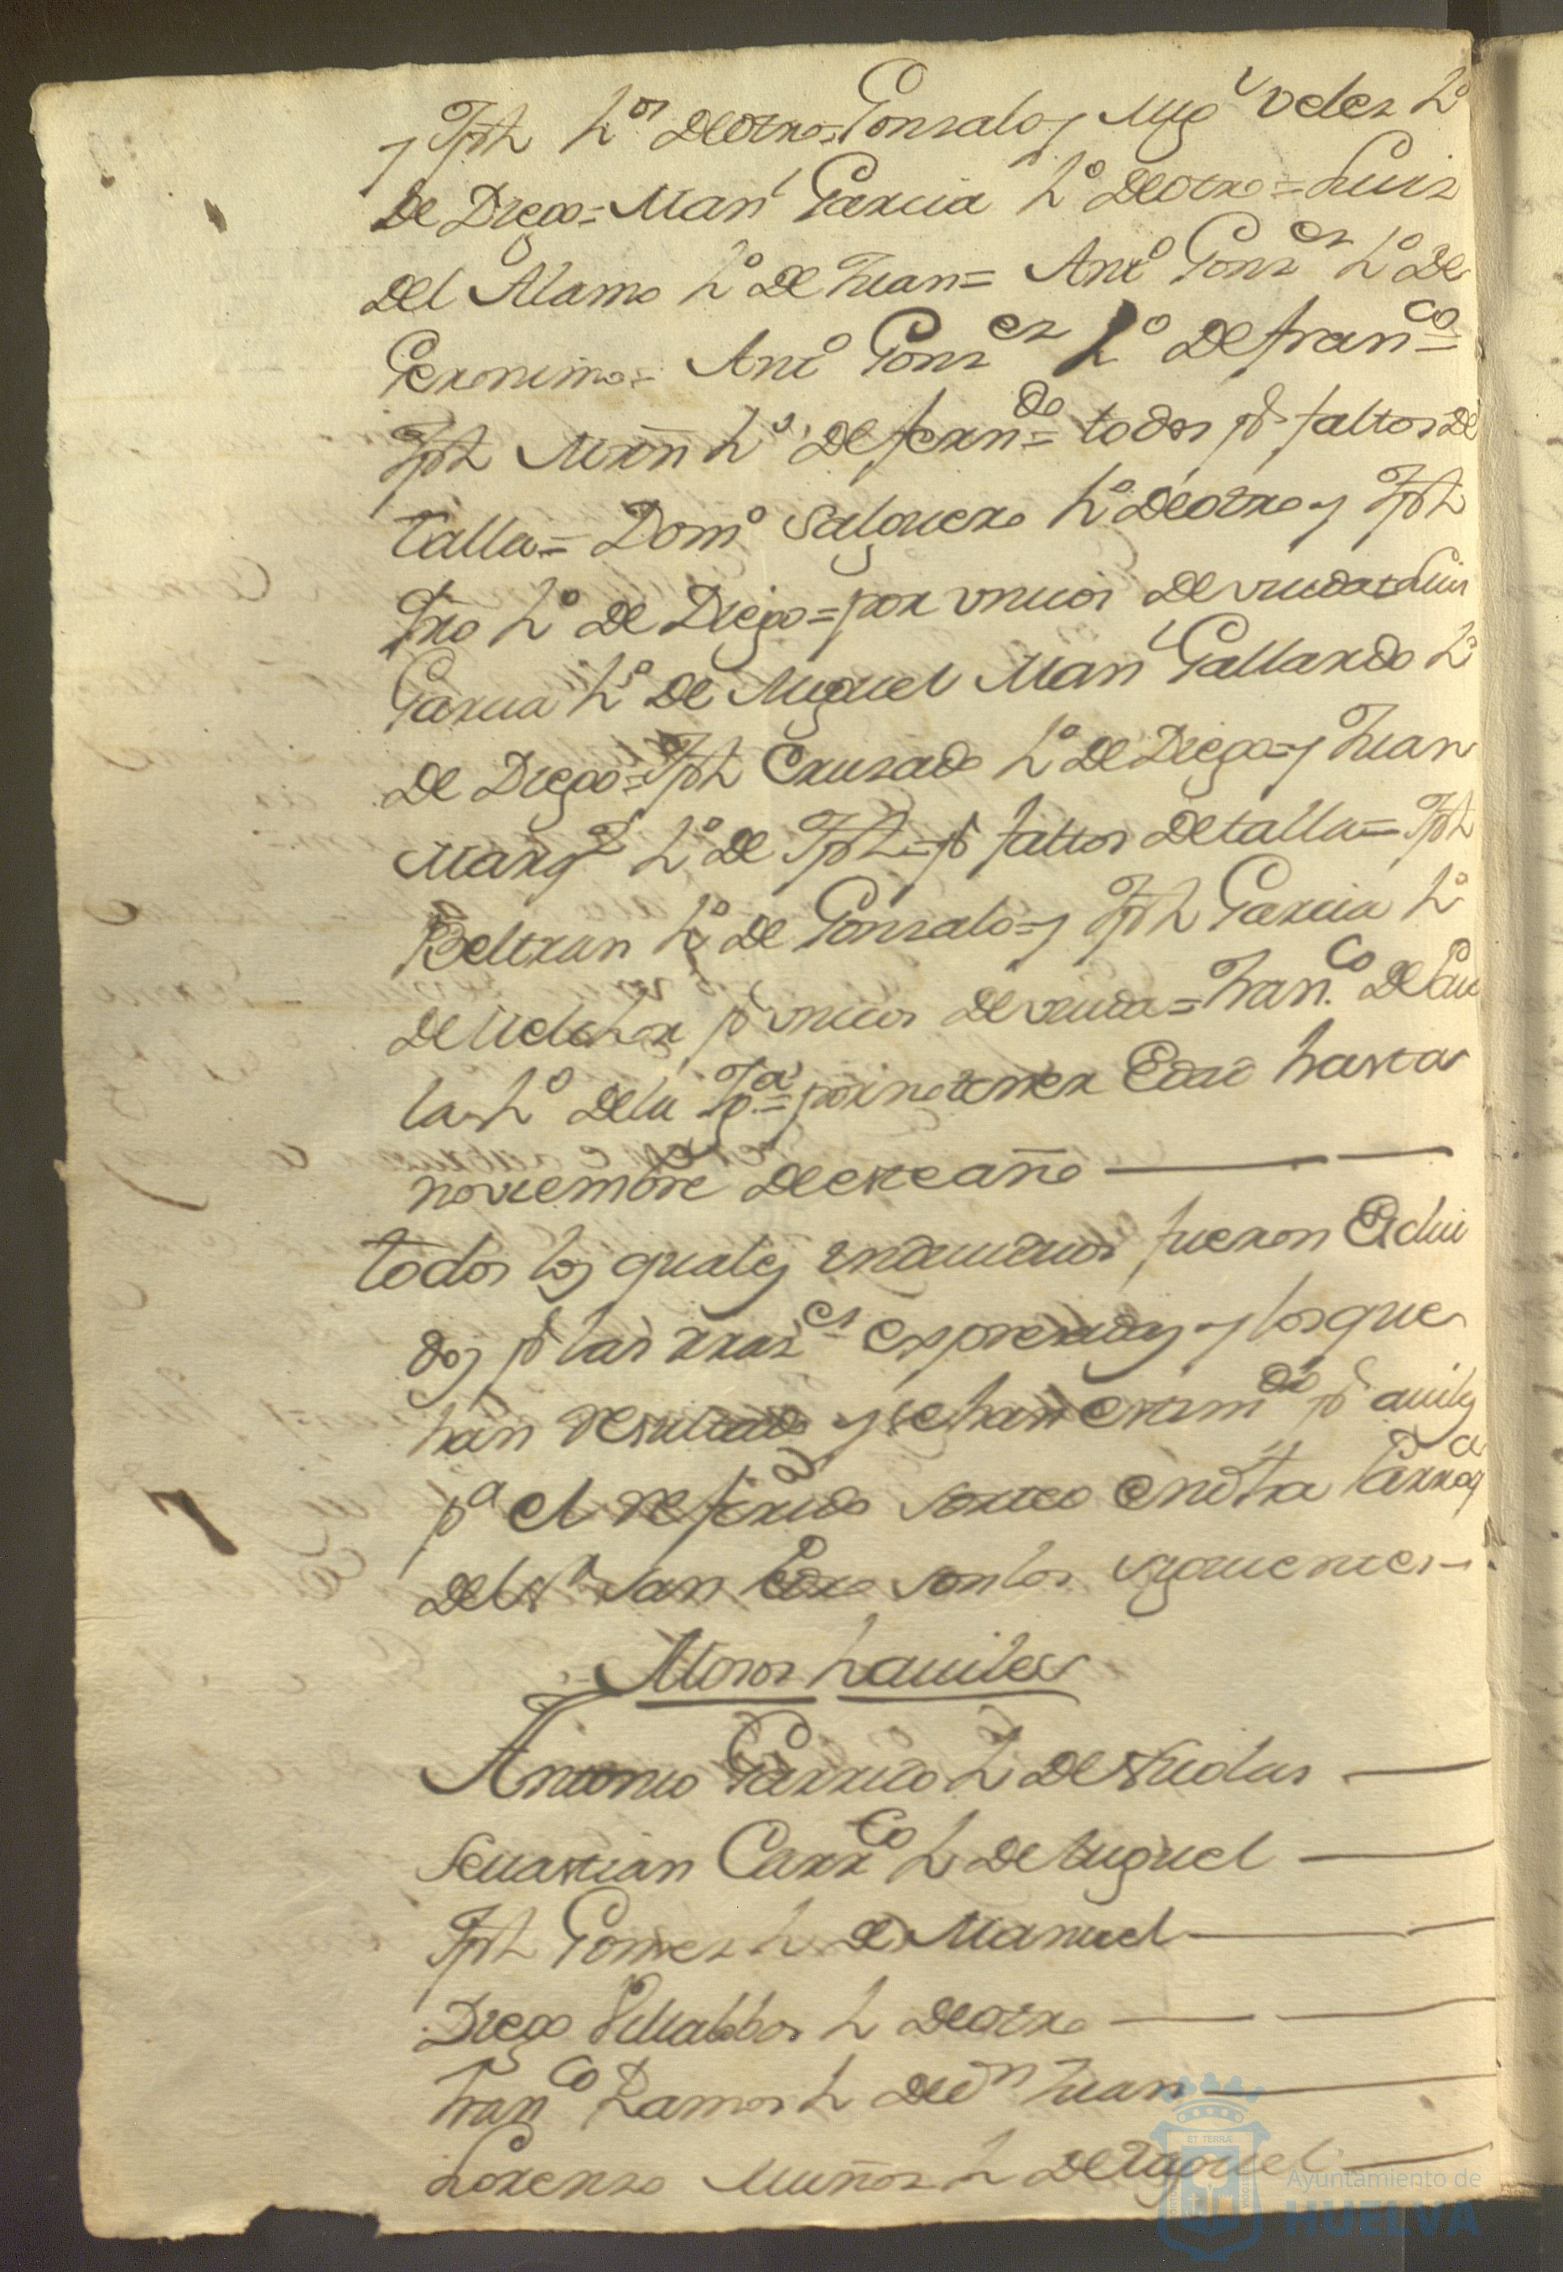 y Jph h.os de otro= Gonsalo y Mig.l Veles h.o
de Diego= Man.l Garcia h.o de otro= Luis
del Alamo h.o de Juan= Ant.o Gonz.es h.o de
Geronimo= Ant.o Gonz.es h.o de fran.co=
Jph Mrñ h.o de fern.do= todos p.r faltos de
talla= Dom.o Salguero h.o de otro y Jph
h.o de Diego= por vnicos de viuda= Luis
Garcia h.o de Miguel Man.l Gallardo h.o
de Diego= Jph Crusado h.o de Diego= y Juan
Marq.z h.o de Jph= p.r faltos de talla= Jph
Beltran h.o de Gonsalo= y Jph Garcia h.o
de Melchor p.r vnicos de veuda= Fran.co de Pau
la h.o de la Yg.a= por no tener Edad hasta
noviembre de este año
todos los quales yndiuiduos fueron Exclui
dos p.r las rras.es expresadas y los que
han resultado y se han exsam.do p.r auiles
p.a el referido sorteo en dha Parroq.a
del S.r San Pedro son los siguientes
Mosos hauiles
Antonio Garrido h de Nicolas
Seuastian Carr.co h de Miguel
Jph Gomes h de Manuel
Diego Villalobos h de otro
Fran.co Ramos h de d.n Juan
Lorenso Muños h de Miguel
ET TERRÆ
Ayuntamiento de
HUELVA